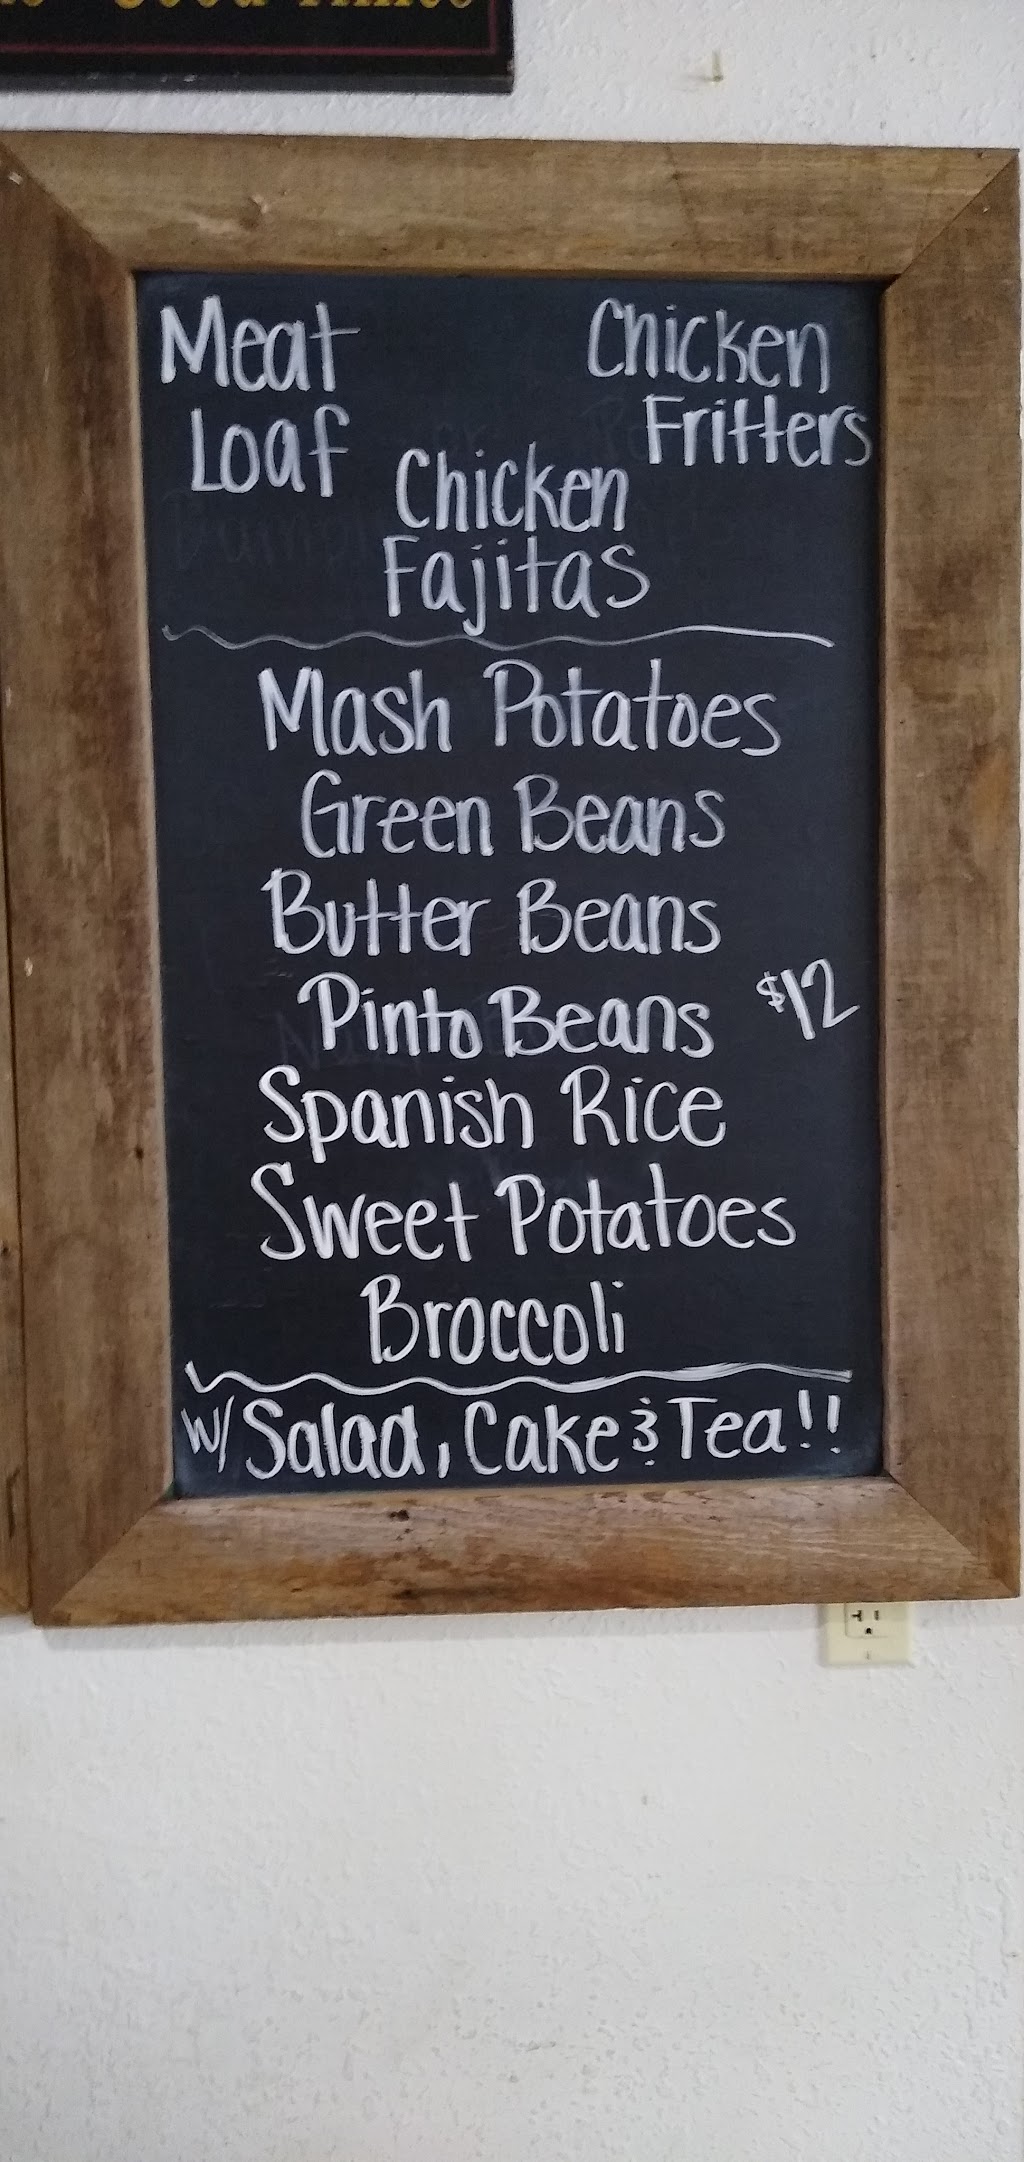 Meat
Loaf
Chicken
Fritters
Chicken
Fajitas
Mash Potatoes
Green Beans
Butter Beans
Pinto Beans $12
Spanish Rice
Sweet Potatoes
Broccoli
w/ Salad, Cake & Tea!!